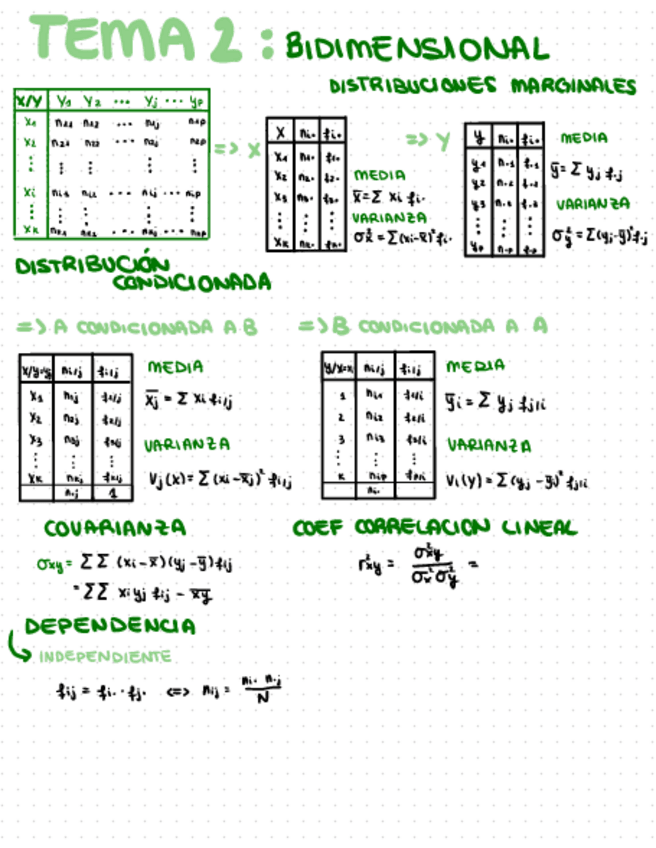 TEMA 2 : BIDIMENSIONAL
DISTRIBUCIONES MARGINALES
X/Y Y₁ Y₂ ... Yⱼ ... Yₚ
X₁ n₁₁ n₁₂ ... n₁ⱼ n₁ₚ
X₂ n₂₁ n₂₂ ... n₂ⱼ n₂ₚ
⋮ ⋮ ⋮ ⋮ ⋮
Xi nᵢ₁ nᵢ₂ ... nᵢⱼ ... nᵢₚ
⋮ ⋮ ⋮ ⋮ ⋮
Xₖ nₖ₁ nₖ₂ ... nₖⱼ ... nₖₚ
=> X
X nᵢ. fᵢ.
X₁ n₁. f₁.
X₂ n₂. f₂.
X₃ n₃. f₃.
⋮ ⋮ ⋮
Xₖ nₖ. fₖ.
MEDIA
x̄ = Σ xi fi.
VARIANZA
σ²x = Σ(xi-x̄)² fi.
=> Y
y nᵢ. fᵢ.
y₁ n.₁ f.₁
y₂ n.₂ f.₂
y₃ n.₃ f.₃
⋮ ⋮ ⋮
yₚ n.ₚ f.ₚ
MEDIA
ȳ = Σ yj f.j
VARIANZA
σ²y = Σ(yj-ȳ)² f.j
DISTRIBUCIÓN
CONDICIONADA
=> A CONDICIONADA A B
X/y=yj ni/j fi/j
X₁ n₁j f₁/j
X₂ n₂j f₂/j
X₃ n₃j f₃/j
⋮ ⋮ ⋮
Xₖ nₖj fₖ/j
n.j 1
MEDIA
x̄j = Σ xi fi/j
VARIANZA
Vj(x) = Σ (xi - x̄j)² fi/j
=> B CONDICIONADA A A
Y/X=xi ni/j fi/j
1 ni₁ f₁/i
2 ni₂ f₂/i
3 ni₃ f₃/i
⋮ ⋮ ⋮
K niₚ fₚ/i
ni.
MEDIA
ȳi = Σ yj fj/i
VARIANZA
Vi(y) = Σ (yj - ȳi)² fj/i
COVARIANZA
σxy = ΣΣ (xi - x̄)(yj - ȳ) fij
= ΣΣ xi yj fij - x̄ȳ
COEF CORRELACION LINEAL
r²xy = σ²xy / σ²x σ²y =
DEPENDENCIA
INDEPENDIENTE
fij = fi. · fj. <=> nij = ni. n.j / N